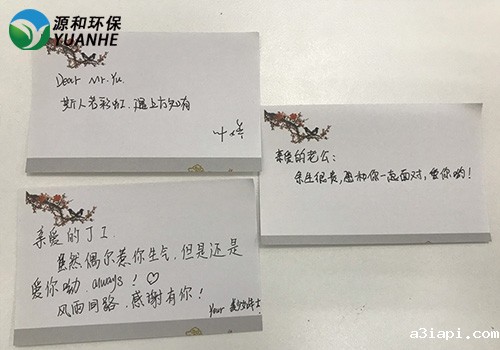 源和环保
YUANHE
Dear Mr.Yu.
斯人若彩虹,遇上方知有
叶
亲爱的老公:
余生很贵,想和你一起面对,爱你哟!
亲爱的丁工.
虽然偶尔惹你生气,但是还是
爱你呦,always!
风雨同路,感谢有你!
Your
a3iapi.com